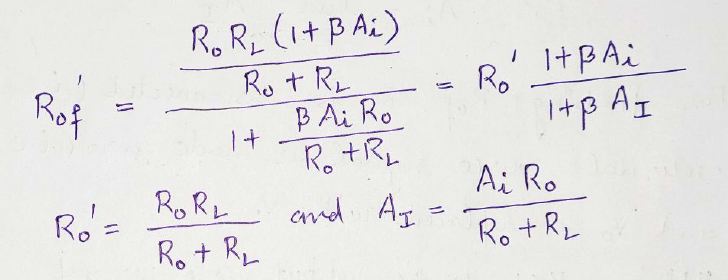 Rof' = (Ro RL (1+βAi) / (Ro + RL)) / (1 + βAiRo / (Ro + RL)) = Ro' (1+βAi) / (1+βAI)
Ro' = RoRL / (Ro + RL) and AI = AiRo / (Ro + RL)